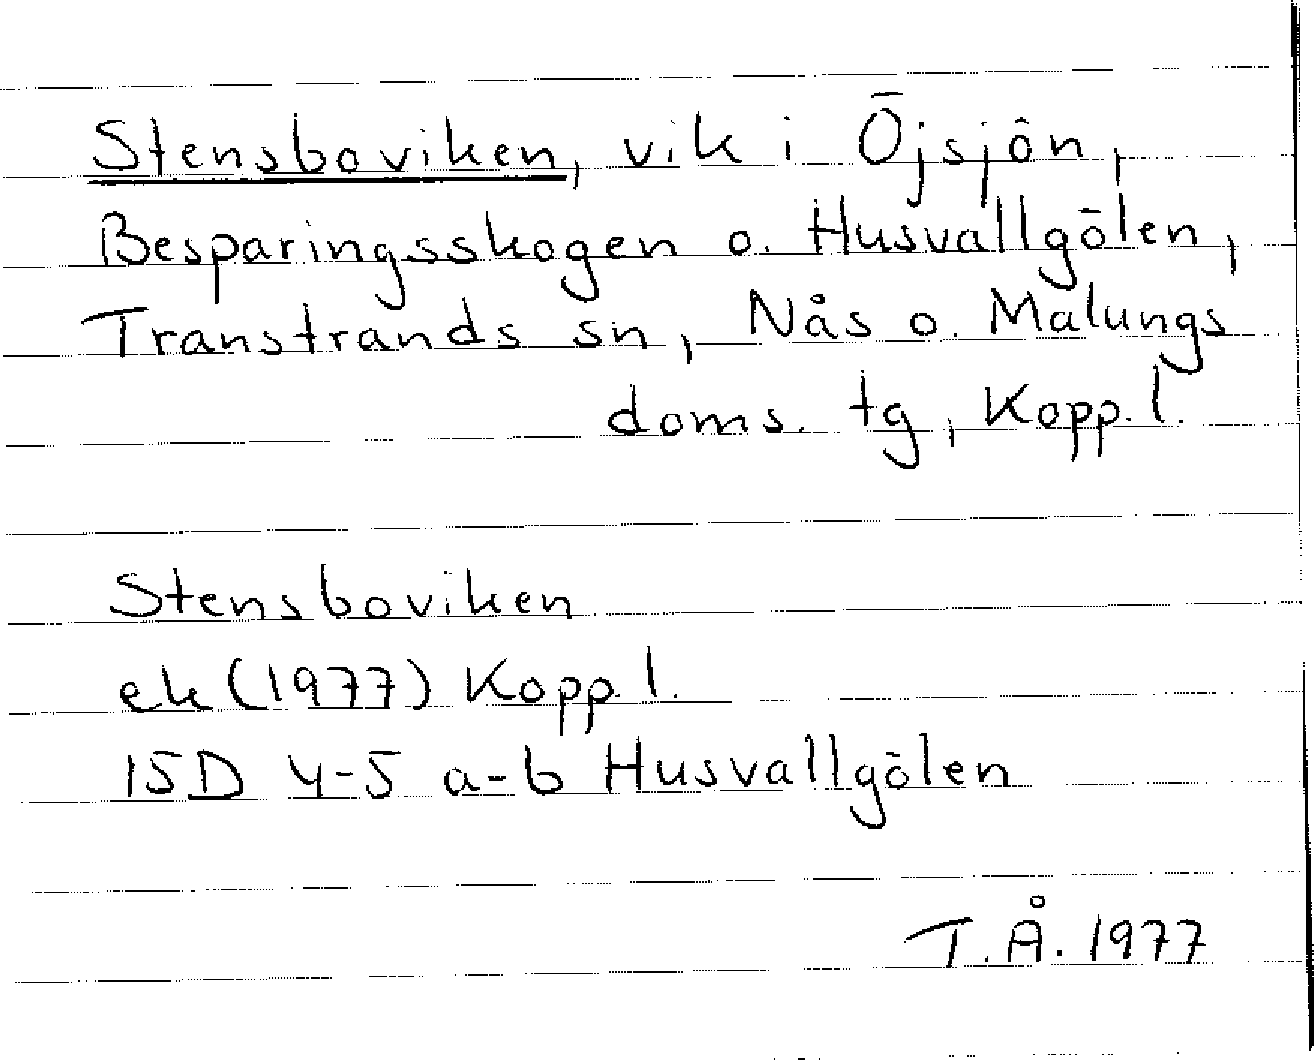 Stensboviken, vik i Öjsjön,
Besparingsskogen o. Husvallgölen,
Transtrands sn, Nås o. Malungs
doms. tg, Kopp. l.
Stensboviken
ek (1977) Kopp. l.
15D 4-5 a-b Husvallgölen
T.Å. 1977